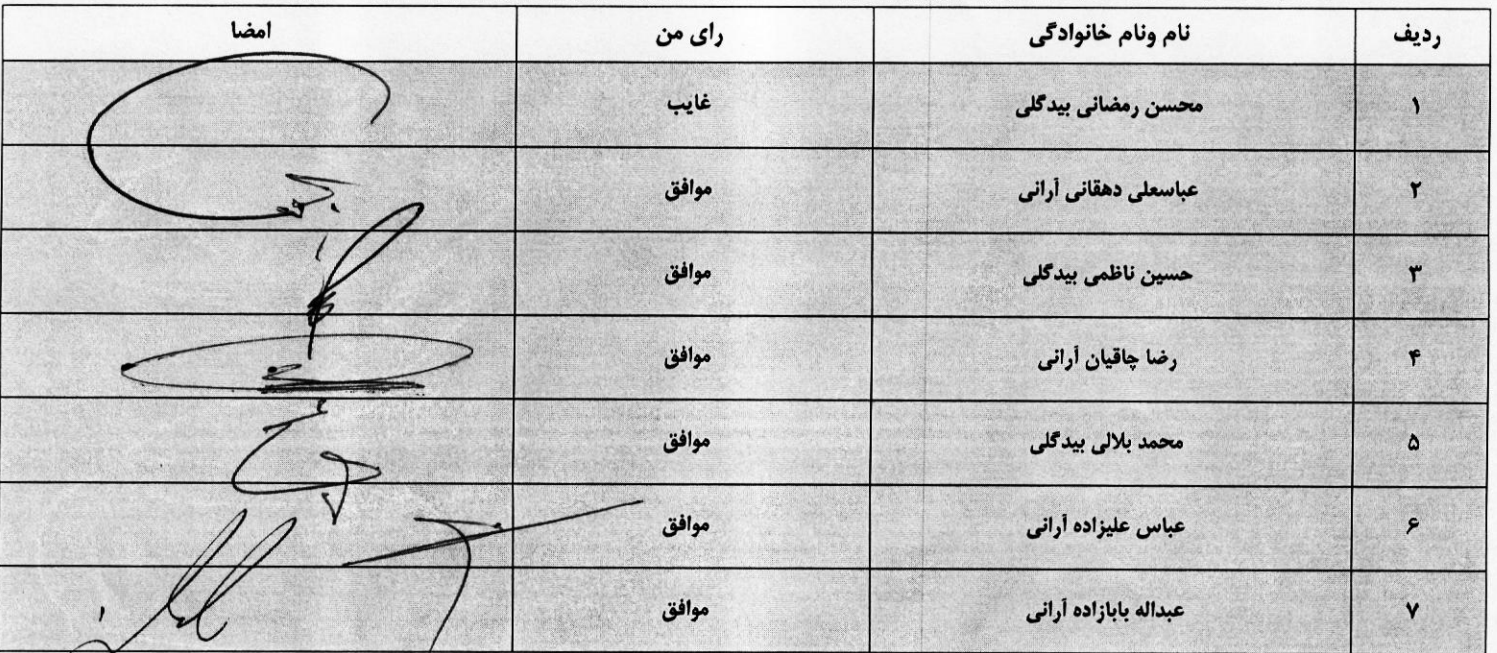 ردیف نام ونام خانوادگی رای من امضا
۱ محسن رمضانی بیدگلی غایب
۲ عباسعلی دهقانی آرانی موافق
۳ حسین ناظمی بیدگلی موافق
۴ رضا چاقیان آرانی موافق
۵ محمد بلالی بیدگلی موافق
۶ عباس علیزاده آرانی موافق
۷ عبداله بابازاده آرانی موافق